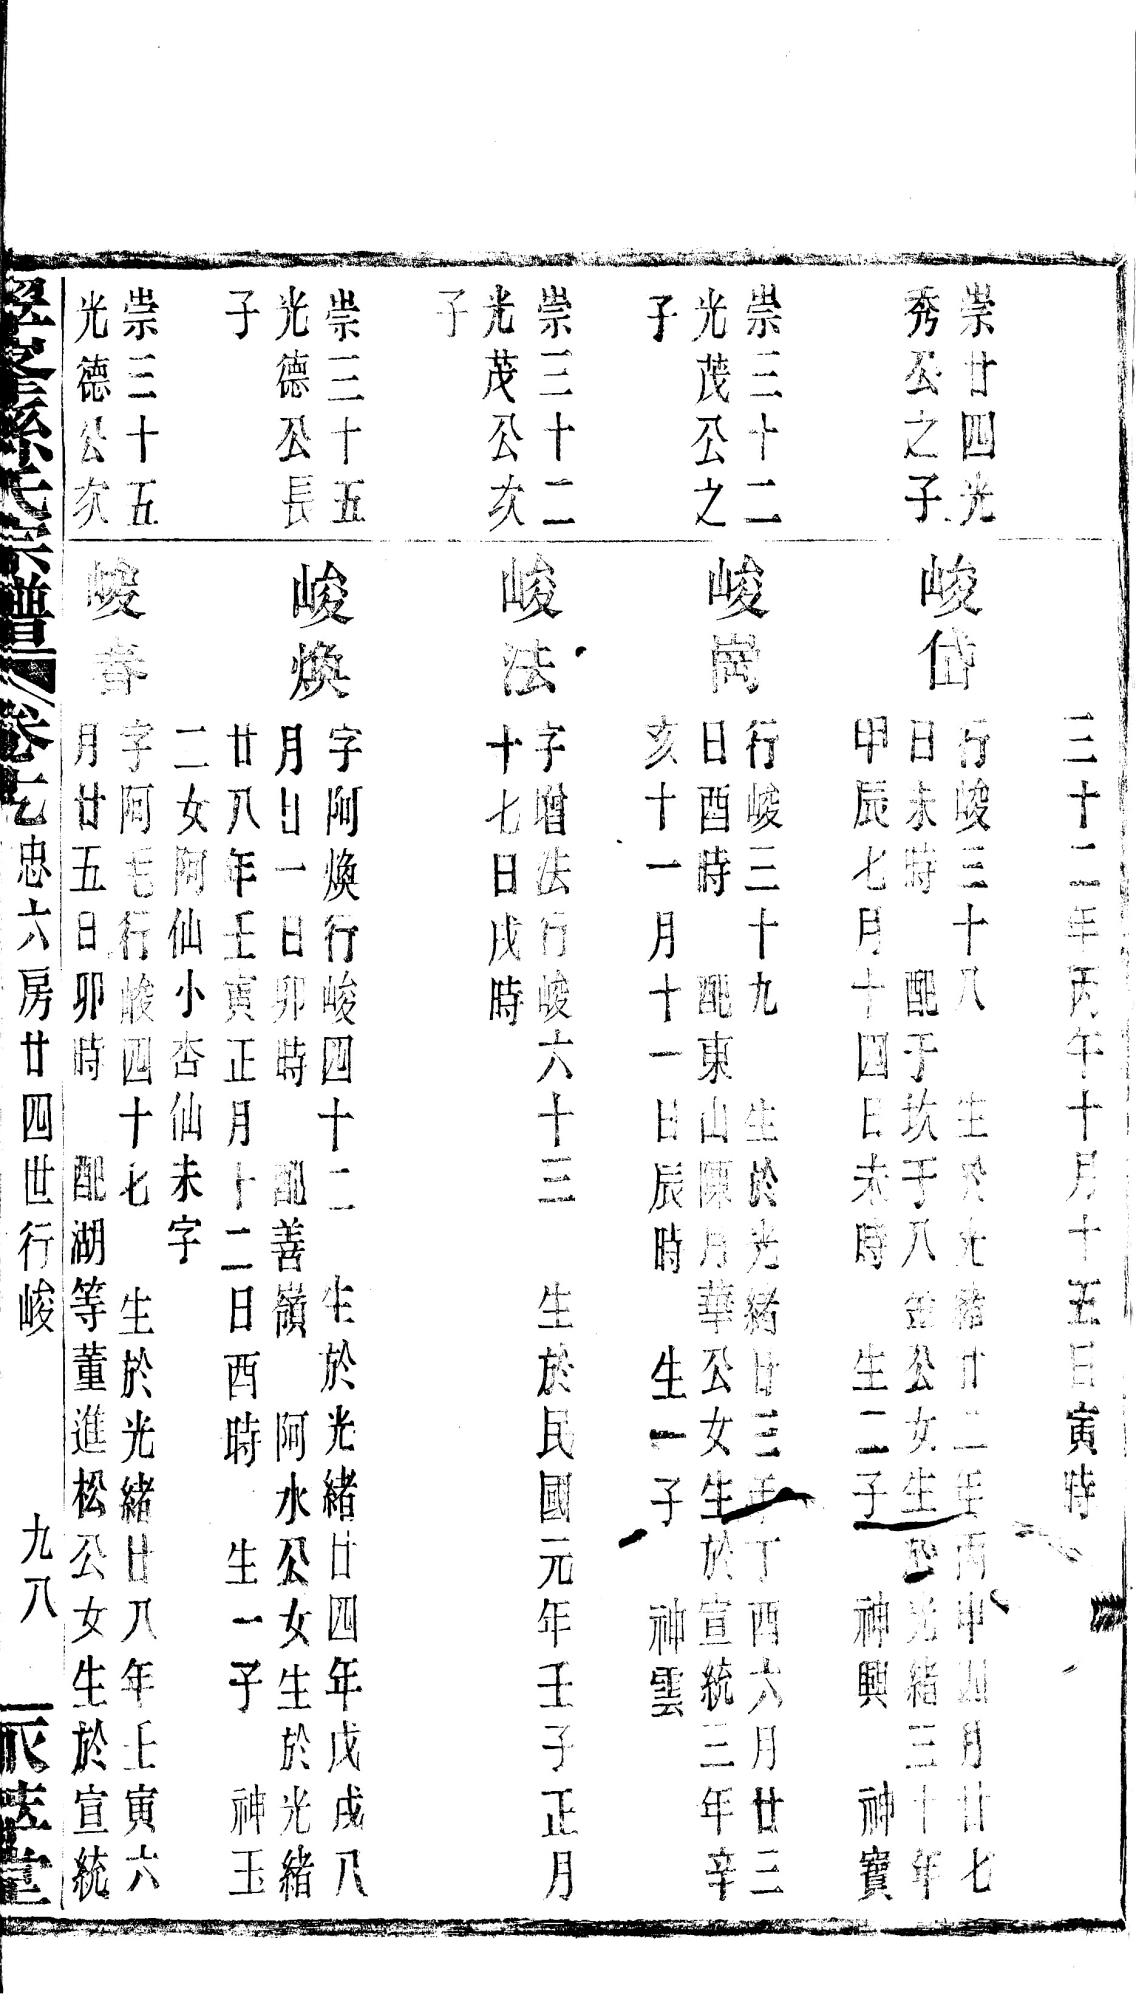 三十二年丙午十月十五日寅時
崇廿四光
秀公之子
峻岱
行峻三十八　生於光緒廿二年丙申四月廿七
日未時　配于坎于八金公女生於光緒三十年
甲辰七月十四日未時　生二子　神興　神寶
崇三十二
光茂公之
子
峻崗
行峻三十九　生於光緒廿三年丁酉六月廿三
日酉時　配東山陳月華公女生於宣統三年辛
亥十一月十一日辰時　生一子　神雲
崇三十二
光茂公次
子
峻法
字增法行峻六十三　生於民國元年壬子正月
十七日戌時
崇三十五
光德公長
子
峻煥
字阿煥行峻四十二　生於光緒廿四年戊戌八
月廿一日卯時　配善嶺　阿水公女生於光緒
廿八年壬寅正月十二日酉時　生一子　神玉
二女阿仙小杏仙未字
崇三十五
光德公次
峻春
字阿毛行峻四十七　生於光緒廿八年壬寅六
月廿五日卯時　配湖等董進松公女生於宣統
孫氏宗譜　卷七忠六房廿四世行峻　九八　堂